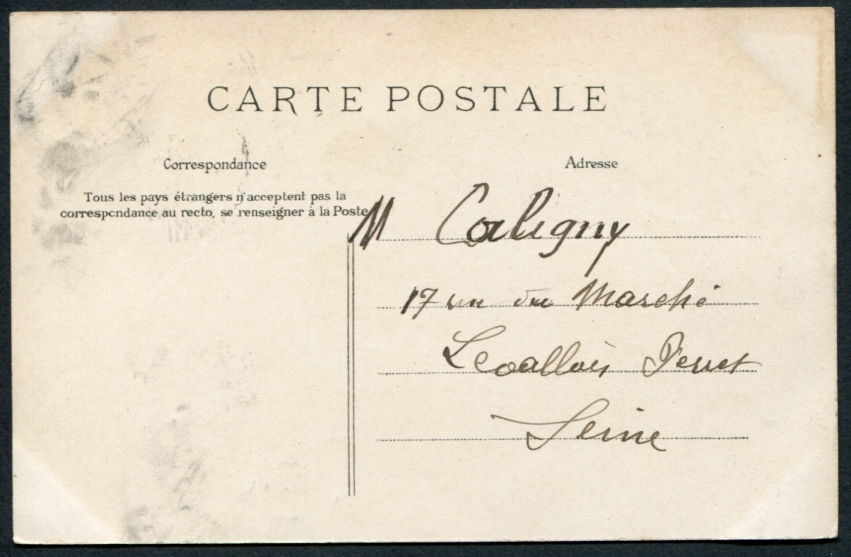 CARTE POSTALE
Correspondance
Adresse
Tous les pays étrangers n'acceptent pas la
correspondance au recto, se renseigner à la Poste
M Coligny
17 rue du Marché
Levallois Perret
Seine